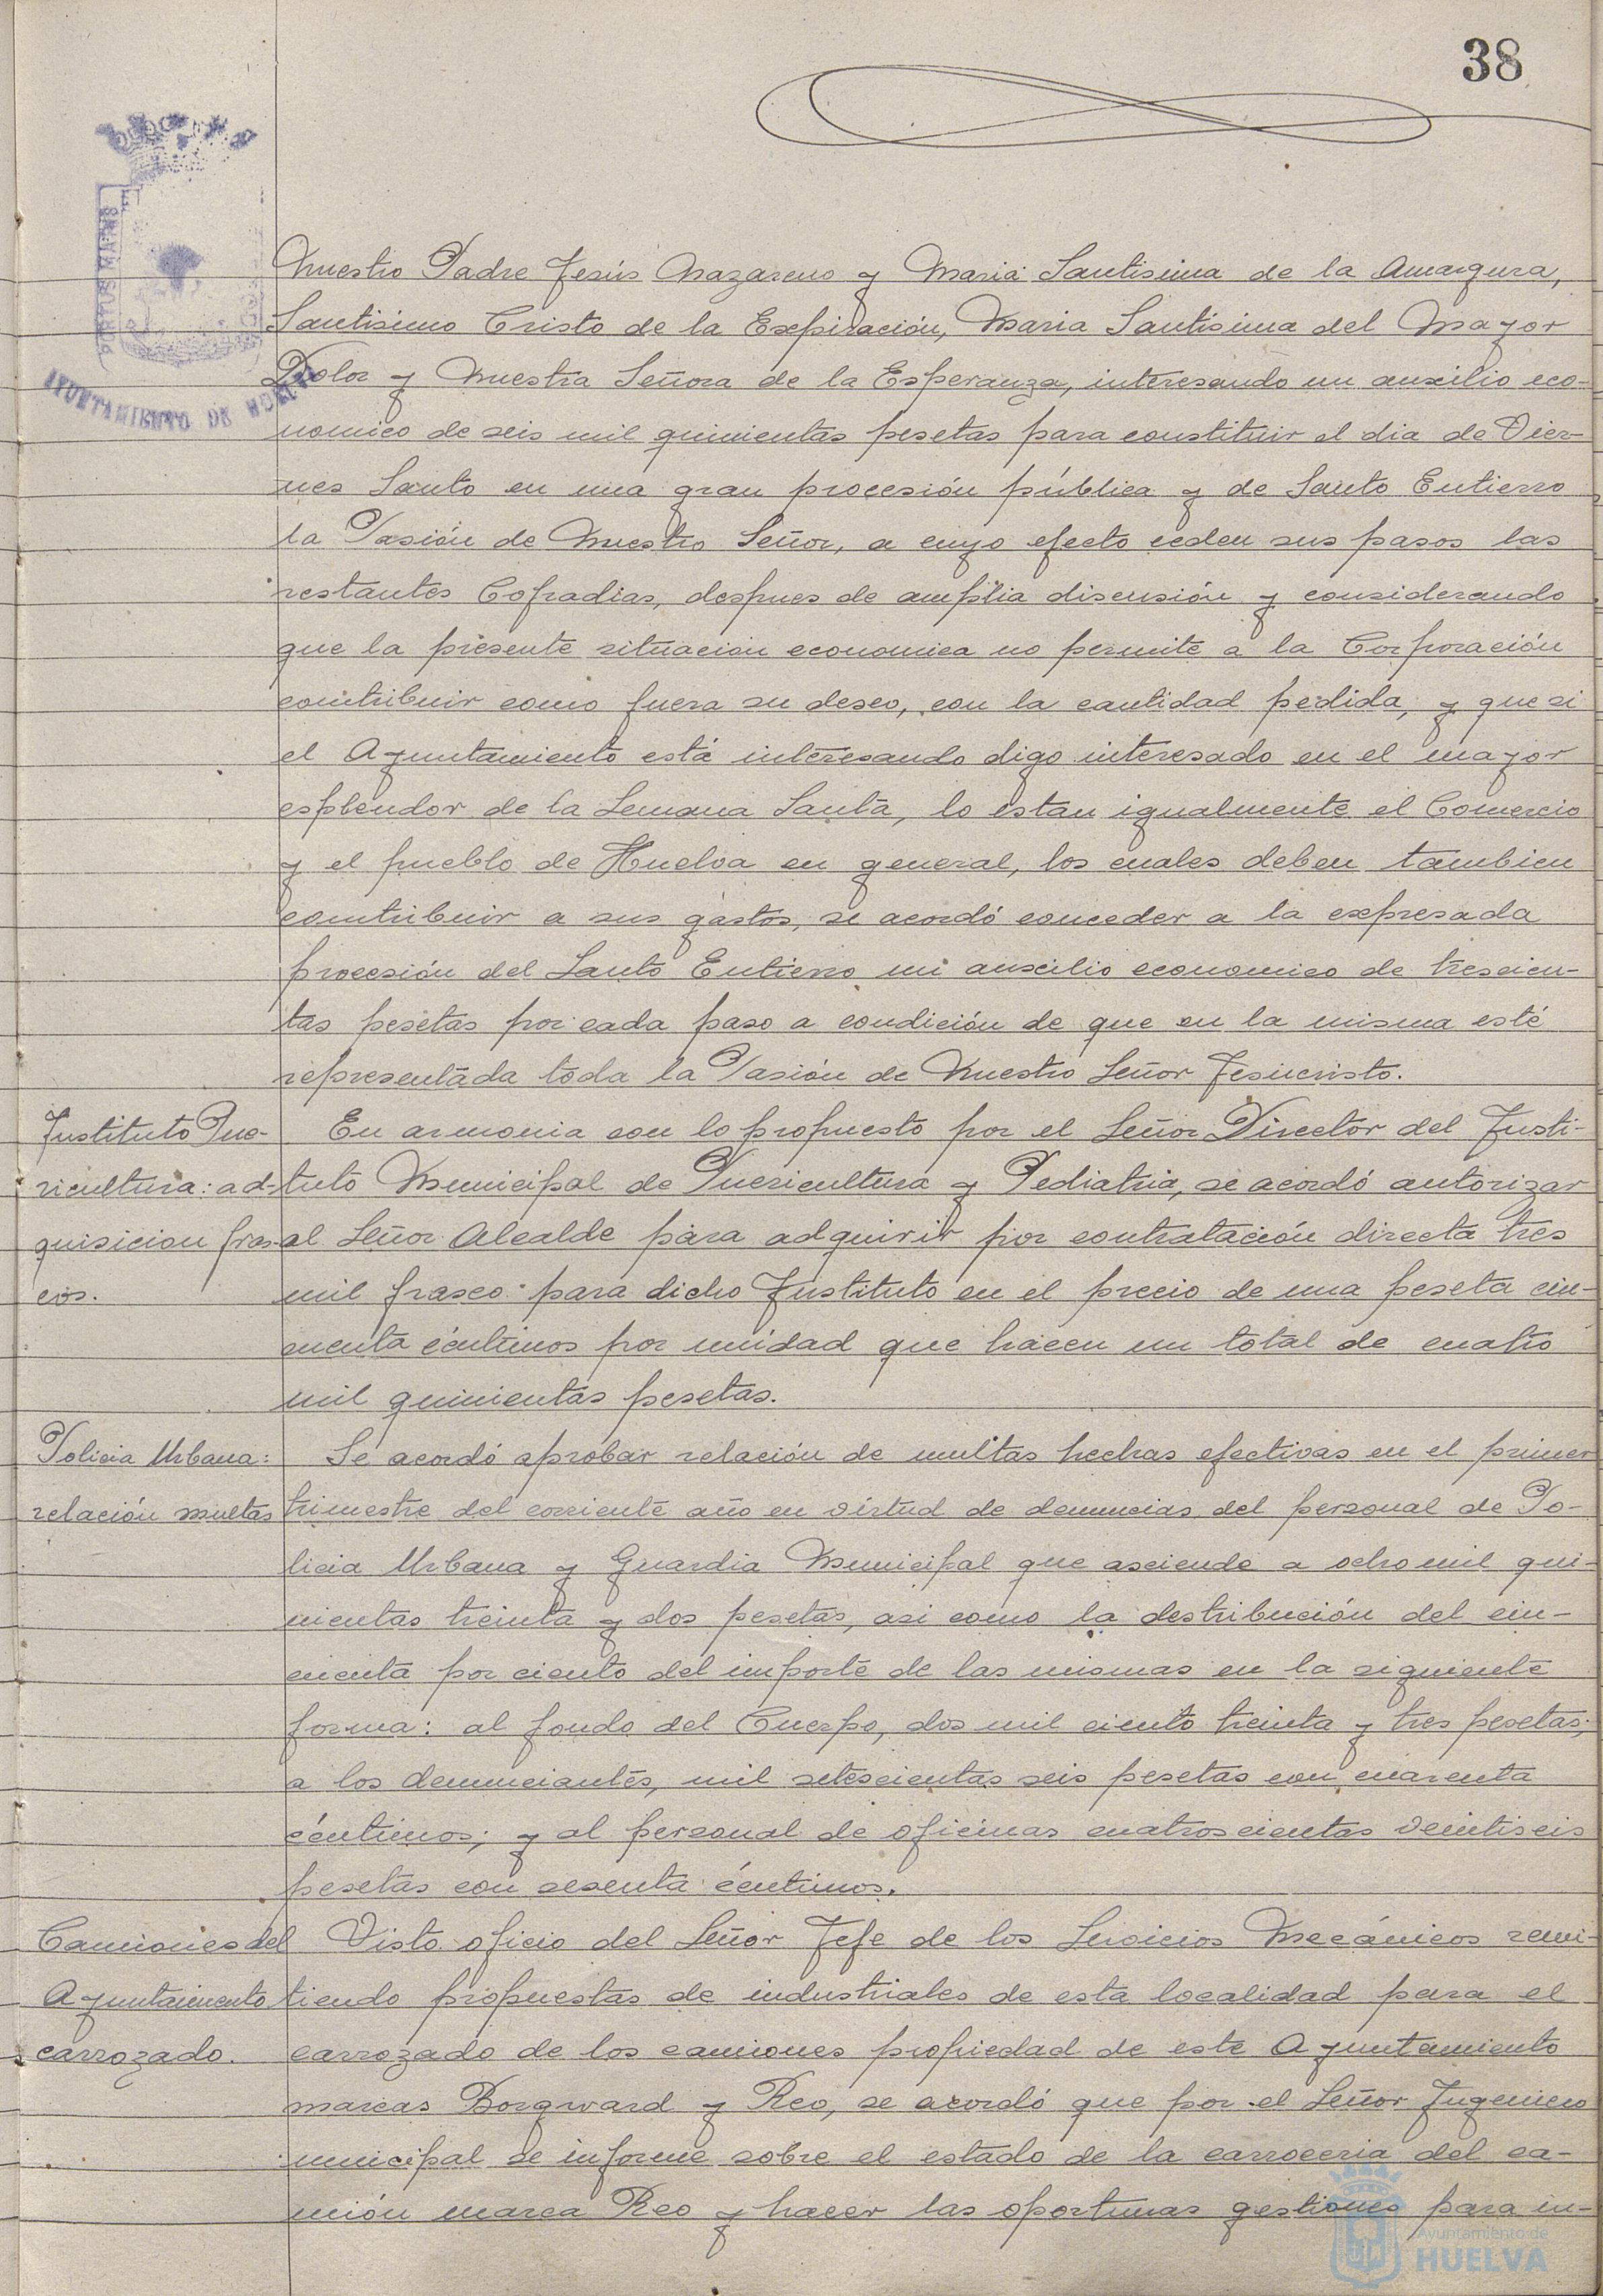 38
PORTUS MARIS ET
AYUNTAMIENTO DE HUELVA
Nuestro Padre Jesús Nazareno y Maria Santisima de la Amargura,
Santisimo Cristo de la Expiración, Maria Santisima del Mayor
Dolor y Nuestra Señora de la Esperanza, interesando un auxilio eco-
nomico de seis mil quinientas pesetas para constituir el dia de Vier-
nes Santo en una gran procesión pública y de Santo Entierro
la Pasión de Nuestro Señor, a cuyo efecto ceden sus pasos las
restantes Cofradias, despues de amplia discusión y considerando
que la presente situacion economica no permite a la Corporación
contribuir como fuera su deseo, con la cantidad pedida, y que si
el Ayuntamiento está interesando digo interesado en el mayor
esplendor de la Semana Santa, lo estan igualmente el Comercio
y el pueblo de Huelva en general, los cuales deben tambien
contribuir a sus gastos, se acordó conceder a la expresada
procesión del Santo Entierro un auxilio economico de trescien-
tas pesetas por cada paso a condición de que en la misma esté
representada toda la Pasión de Nuestro Señor Jesucristo.
Instituto Pue-
ricultura: ad-
quisicion fras-
cos.
En armonia con lo propuesto por el Señor Director del Insti-
tuto Municipal de Puericultura y Pediatria, se acordó autorizar
al Señor Alcalde para adquirir por contratación directa tres
mil frasco para dicho Instituto en el precio de una peseta cin-
cuenta céntimos por unidad que hacen un total de cuatro
mil quinientas pesetas.
Policia Urbana:
relación multas
Se acordó aprobar relación de multas hechas efectivas en el primer
trimestre del corriente año en virtud de denuncias del personal de Po-
licia Urbana y Guardia Municipal que asciende a ocho mil qui-
nientas treinta y dos pesetas, asi como la destribución del cin-
cuenta por ciento del importe de las mismas en la siguiente
forma: al fondo del Cuerpo, dos mil ciento treinta y tres pesetas;
a los denunciantes, mil setescientas seis pesetas con cuarenta
céntimos; y al personal de oficinas cuatroscientas veintiseis
pesetas con sesenta céntimos.
Camiones del
Ayuntamiento
carrozado.
Visto oficio del Señor Jefe de los Servicios Mecánicos remi-
tiendo propuestas de industriales de esta localidad para el
carrozado de los camiones propiedad de este Ayuntamiento
marcas Borgward y Reo, se acordó que por el Señor Ingeniero
municipal se informe sobre el estado de la carroceria del ca-
mión marca Reo y hacer las oportunas gestiones para in-
Ayuntamiento de
HUELVA